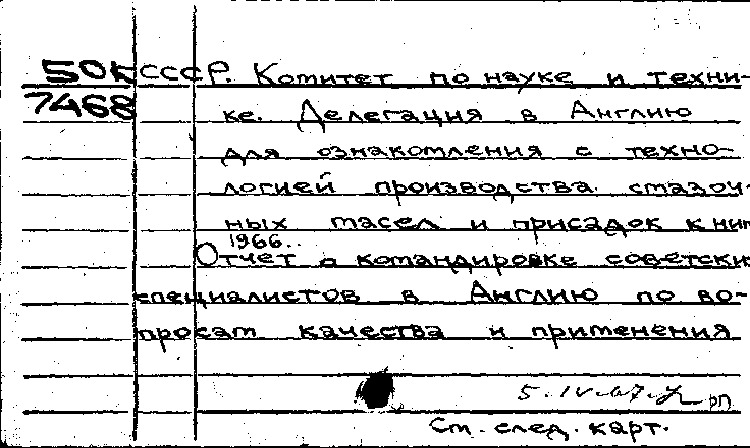 50К СССР. Комитет по науке и техни-
7468 ке. Делегация в Англию
для ознакомления с техно-
логией производства смазоч-
ных масел и присадок к ним
1966..
Отчет о командировке советски
специалистов в Англию по во-
просам качества и применения
5.IV.67.
См. след. карт.